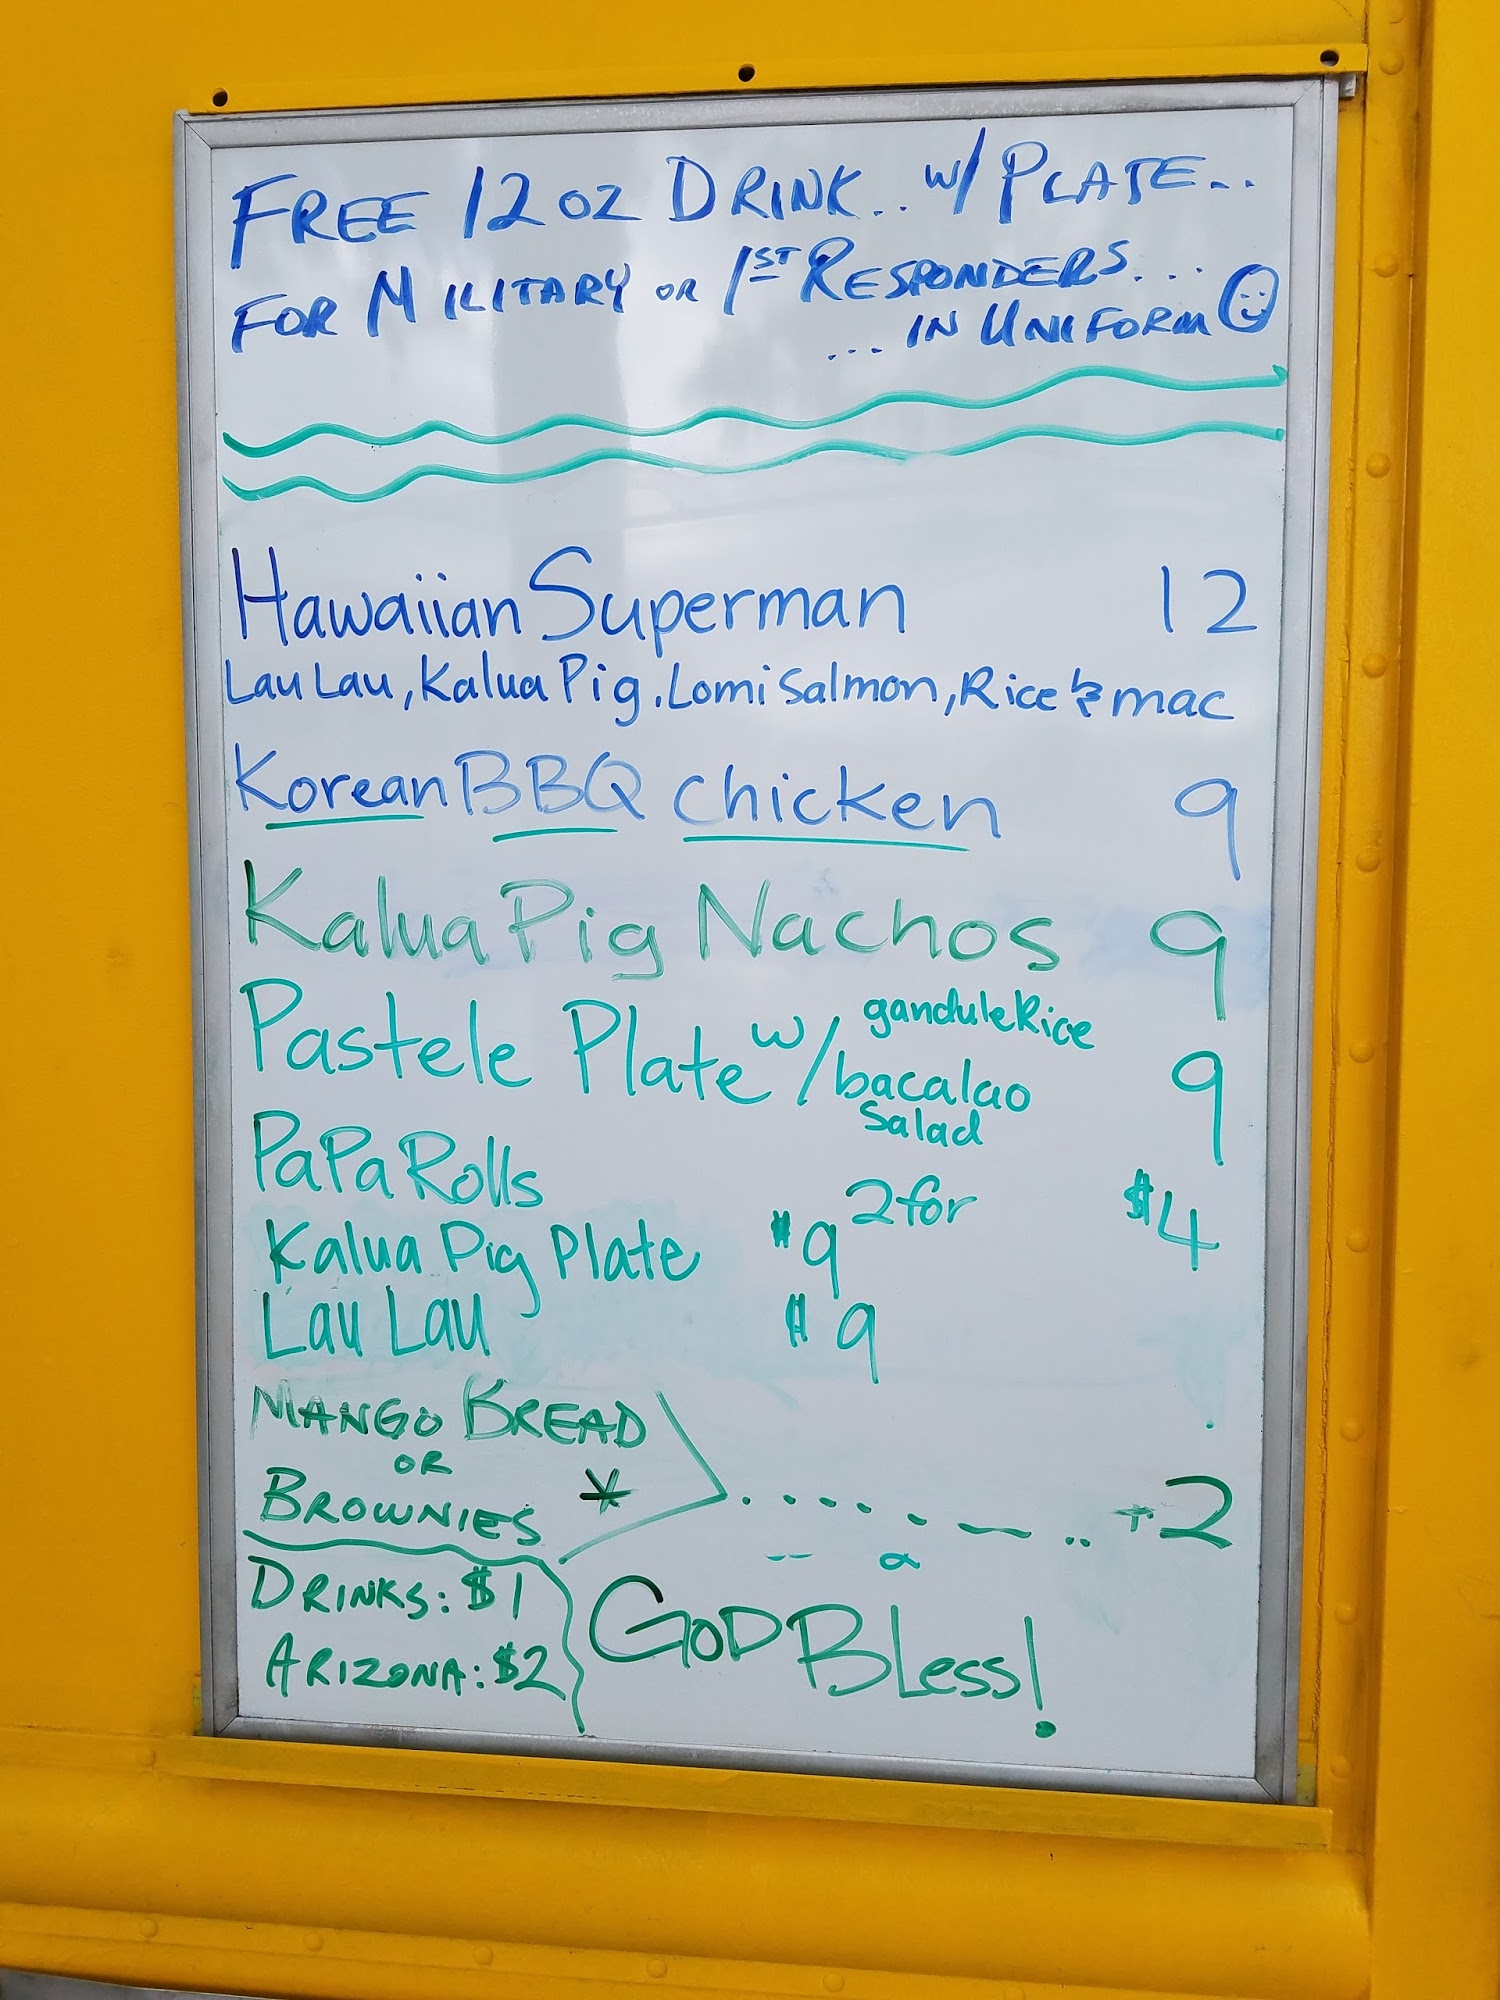 FREE 12 OZ DRINK.. W/ PLATE..
FOR MILITARY OR 1ST RESPONDERS...
... IN UNIFORM
Hawaiian Superman 12
Lau Lau, Kalua Pig, Lomi Salmon, Rice & mac
Korean BBQ chicken 9
Kalua Pig Nachos 9
Pastele Plate w/ gandule Rice
bacalao 9
Salad
PaPa Rolls 2 for $4
Kalua Pig Plate $9
Lau Lau $9
MANGO BREAD
OR
BROWNIES * ..... +2
DRINKS: $1
ARIZONA: $2
GOD BLess!